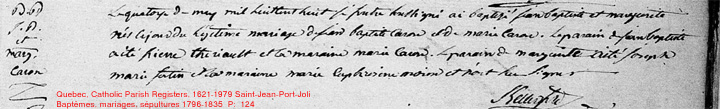 Bd
J. B.
et
marg.
Caron
Le quatorze de may mil huit cent huit je prêtre soussigné ai baptisé jean baptiste et margueritte
nés ce jour du légitime mariage de jean baptiste Caron et de marie Caron. Le parain de jean baptiste
a été pierre theriault et la maraine marie Caron. Le parain de margueritte a été joseph
marie et la maraine marie Euphrosine et n'ont su signer
Quebec, Catholic Parish Registers, 1621-1979 Saint-Jean-Port-Joli
Baptêmes, mariages, sépultures 1796-1835 P: 124